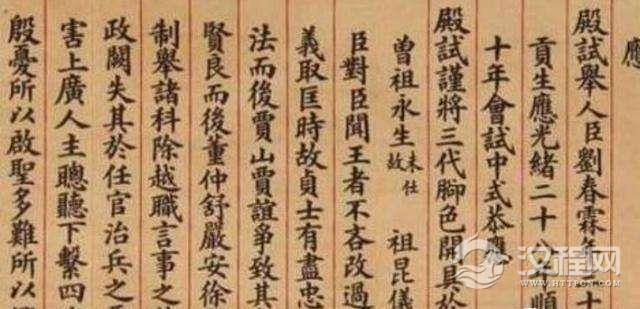 應
殿試舉人臣劉春霖年十
貢生應光緒二十八順
十年會試中式恭應
殿試謹將三代腳色開具於
曾祖永生 未仕故 祖昆儀
臣對臣聞王者不吝改過
義取匡時故貞士有盡忠
法而後賈山賈誼爭致其
賢良而後董仲舒嚴安徐
制舉諸科除越職言事之
政闕失其於任官治兵之
害上廣人主聰聽下繫四
殷憂所以啟聖多難所以
汉程网